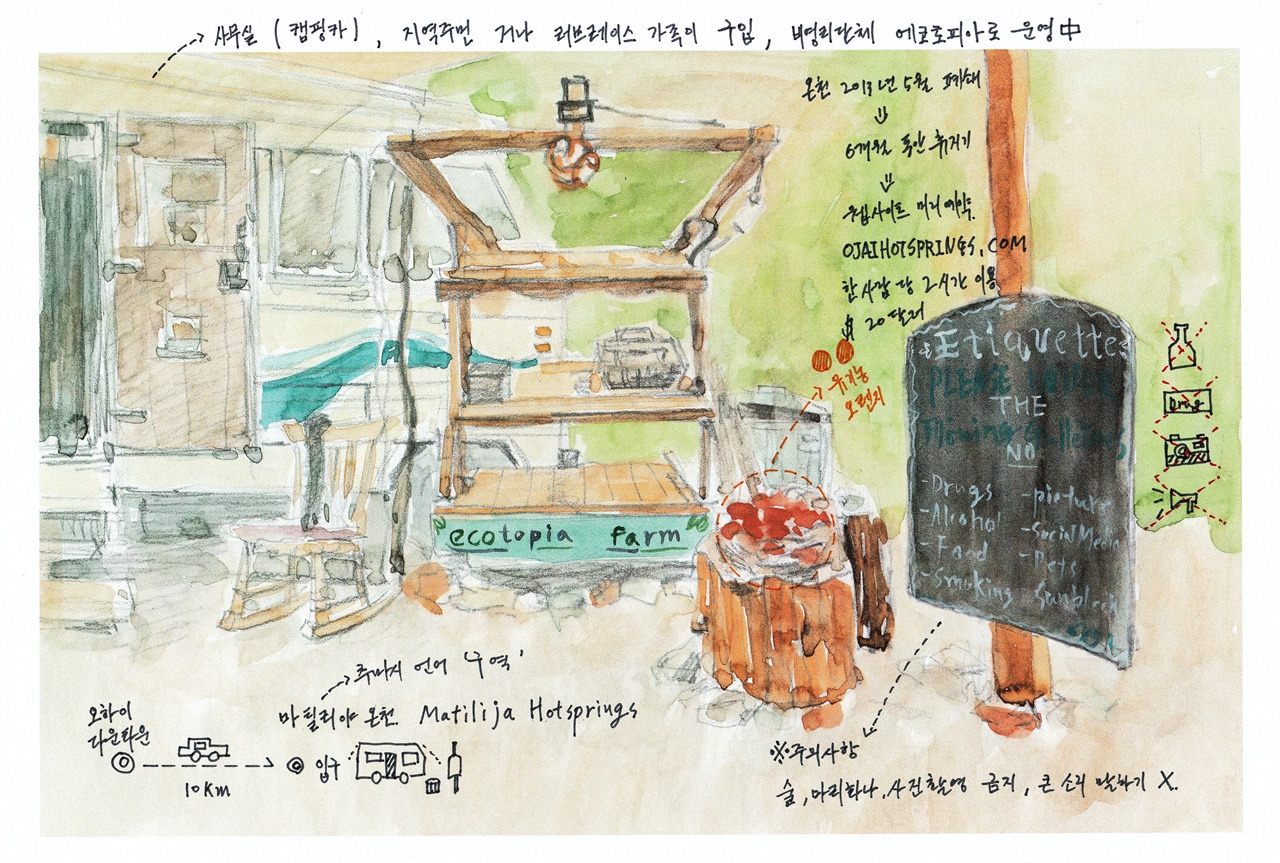 사무실 (캠핑카), 지역주민 거나 러브레이스 가족이 구입, 비영리단체 에코토피아로 운영中
온천 2017년 5월 폐쇄
⇓
6개월 동안 휴거기
⇓
웹사이트 미리 예약.
OJAIHOTSPRINGS.COM
한 사람 당 2시간 이용
$ 20달러
유기농
오렌지
Etiquette
PLEASE
THE
Flowing
NO
-Drugs -picture
-Alcohol -Social Media
-Food -Pets
-Smoking Sunblock
Drug
ecotopia farm
추마시 언어 '구역'
마틸리야 온천 Matilija Hotsprings
오하이
다운타운
10km
입구
※주의사항
술, 마리화나, 사진촬영 금지, 큰 소리 말하기 X.